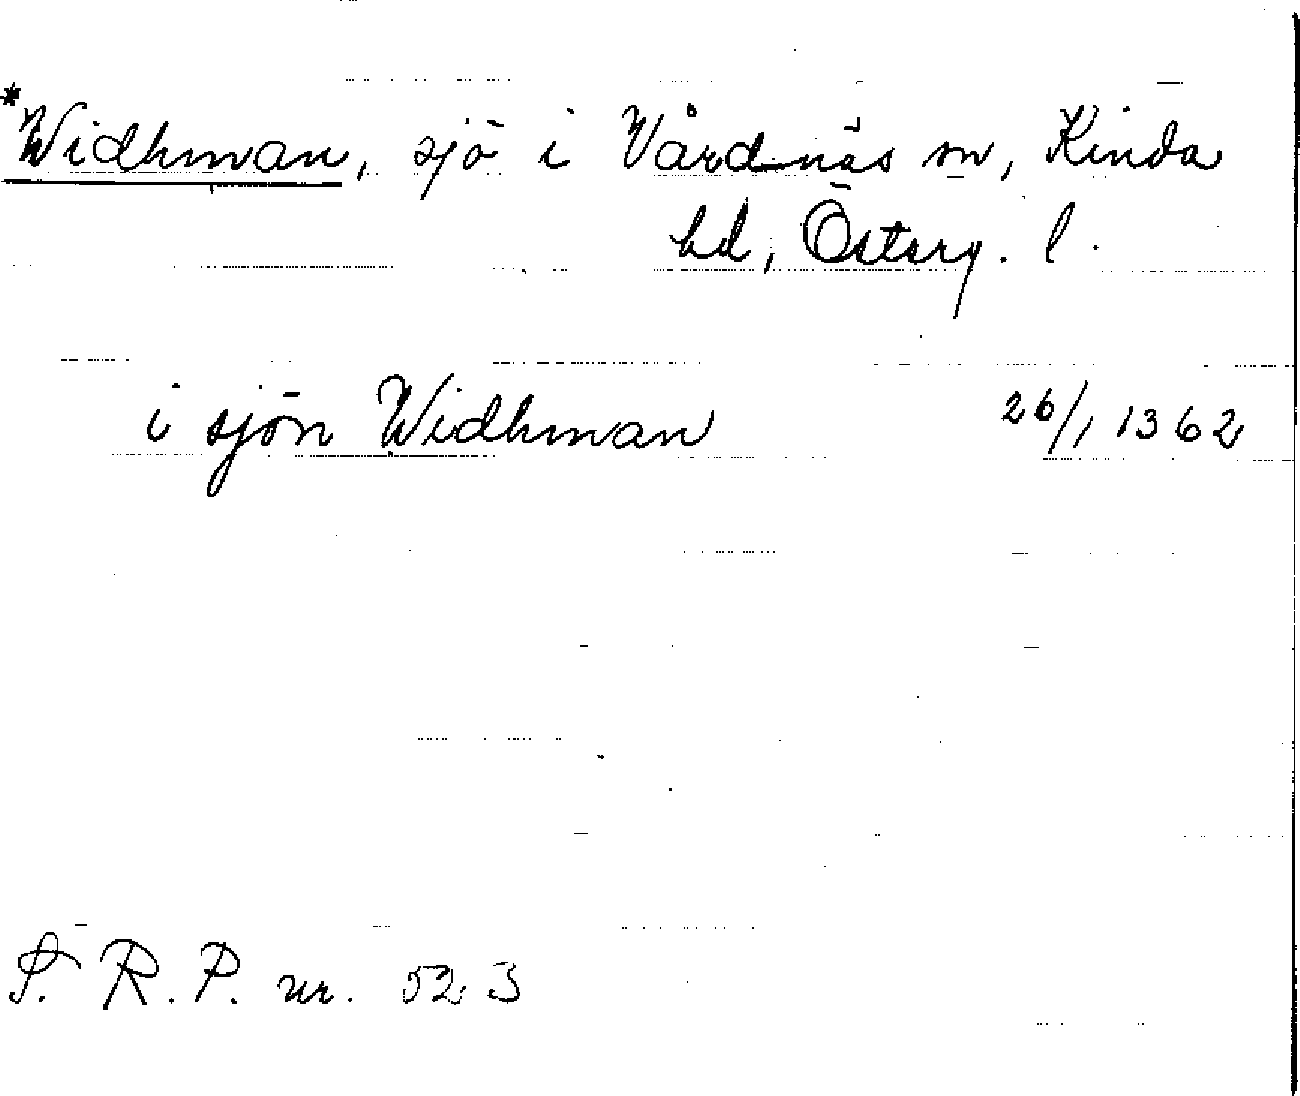 *Widhman, sjö i Vårdnäs sn, Kinda
hd, Österg. l.
i sjön Widhman 26/1 1362
S. R. P. nr. 523